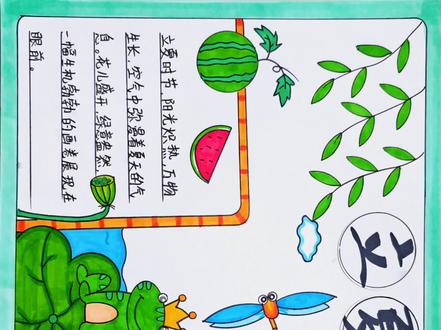 立夏
立夏时节,阳光炽热,万物
生长,空气中弥漫着夏天的气
息。花儿盛开,绿意盎然,
一幅生机勃勃的画卷展现在
眼前。